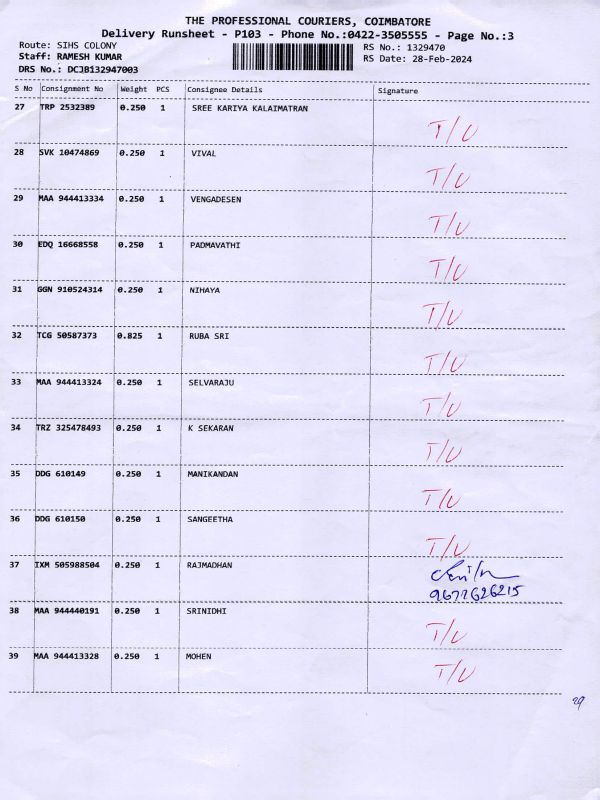 THE PROFESSIONAL COURIERS, COIMBATORE
Delivery Runsheet - P103 - Phone No.:0422-3505555 - Page No.:3
Route: SIHS COLONY RS No.: 1329470
Staff: RAMESH KUMAR RS Date: 28-Feb-2024
DRS No.: DCJB132947003
S No Consignment No Weight PCS Consignee Details Signature
27 TRP 2532389 0.250 1 SREE KARIYA KALAIMATRAN
T/U
28 SVK 10474869 0.250 1 VIVAL
T/U
29 MAA 944413334 0.250 1 VENGADESEN
T/U
30 EDQ 16668558 0.250 1 PADMAVATHI
T/U
31 GGN 910524314 0.250 1 NIHAYA
T/U
32 TCG 50587373 0.825 1 RUBA SRI
T/U
33 MAA 944413324 0.250 1 SELVARAJU
T/U
34 TRZ 325478493 0.250 1 K SEKARAN
T/U
35 DDG 610149 0.250 1 MANIKANDAN
T/U
36 DDG 610150 0.250 1 SANGEETHA
T/U
37 IXM 505988504 0.250 1 RAJMADHAN
9677626215
38 MAA 944440191 0.250 1 SRINIDHI
T/U
39 MAA 944413328 0.250 1 MOHEN
T/U